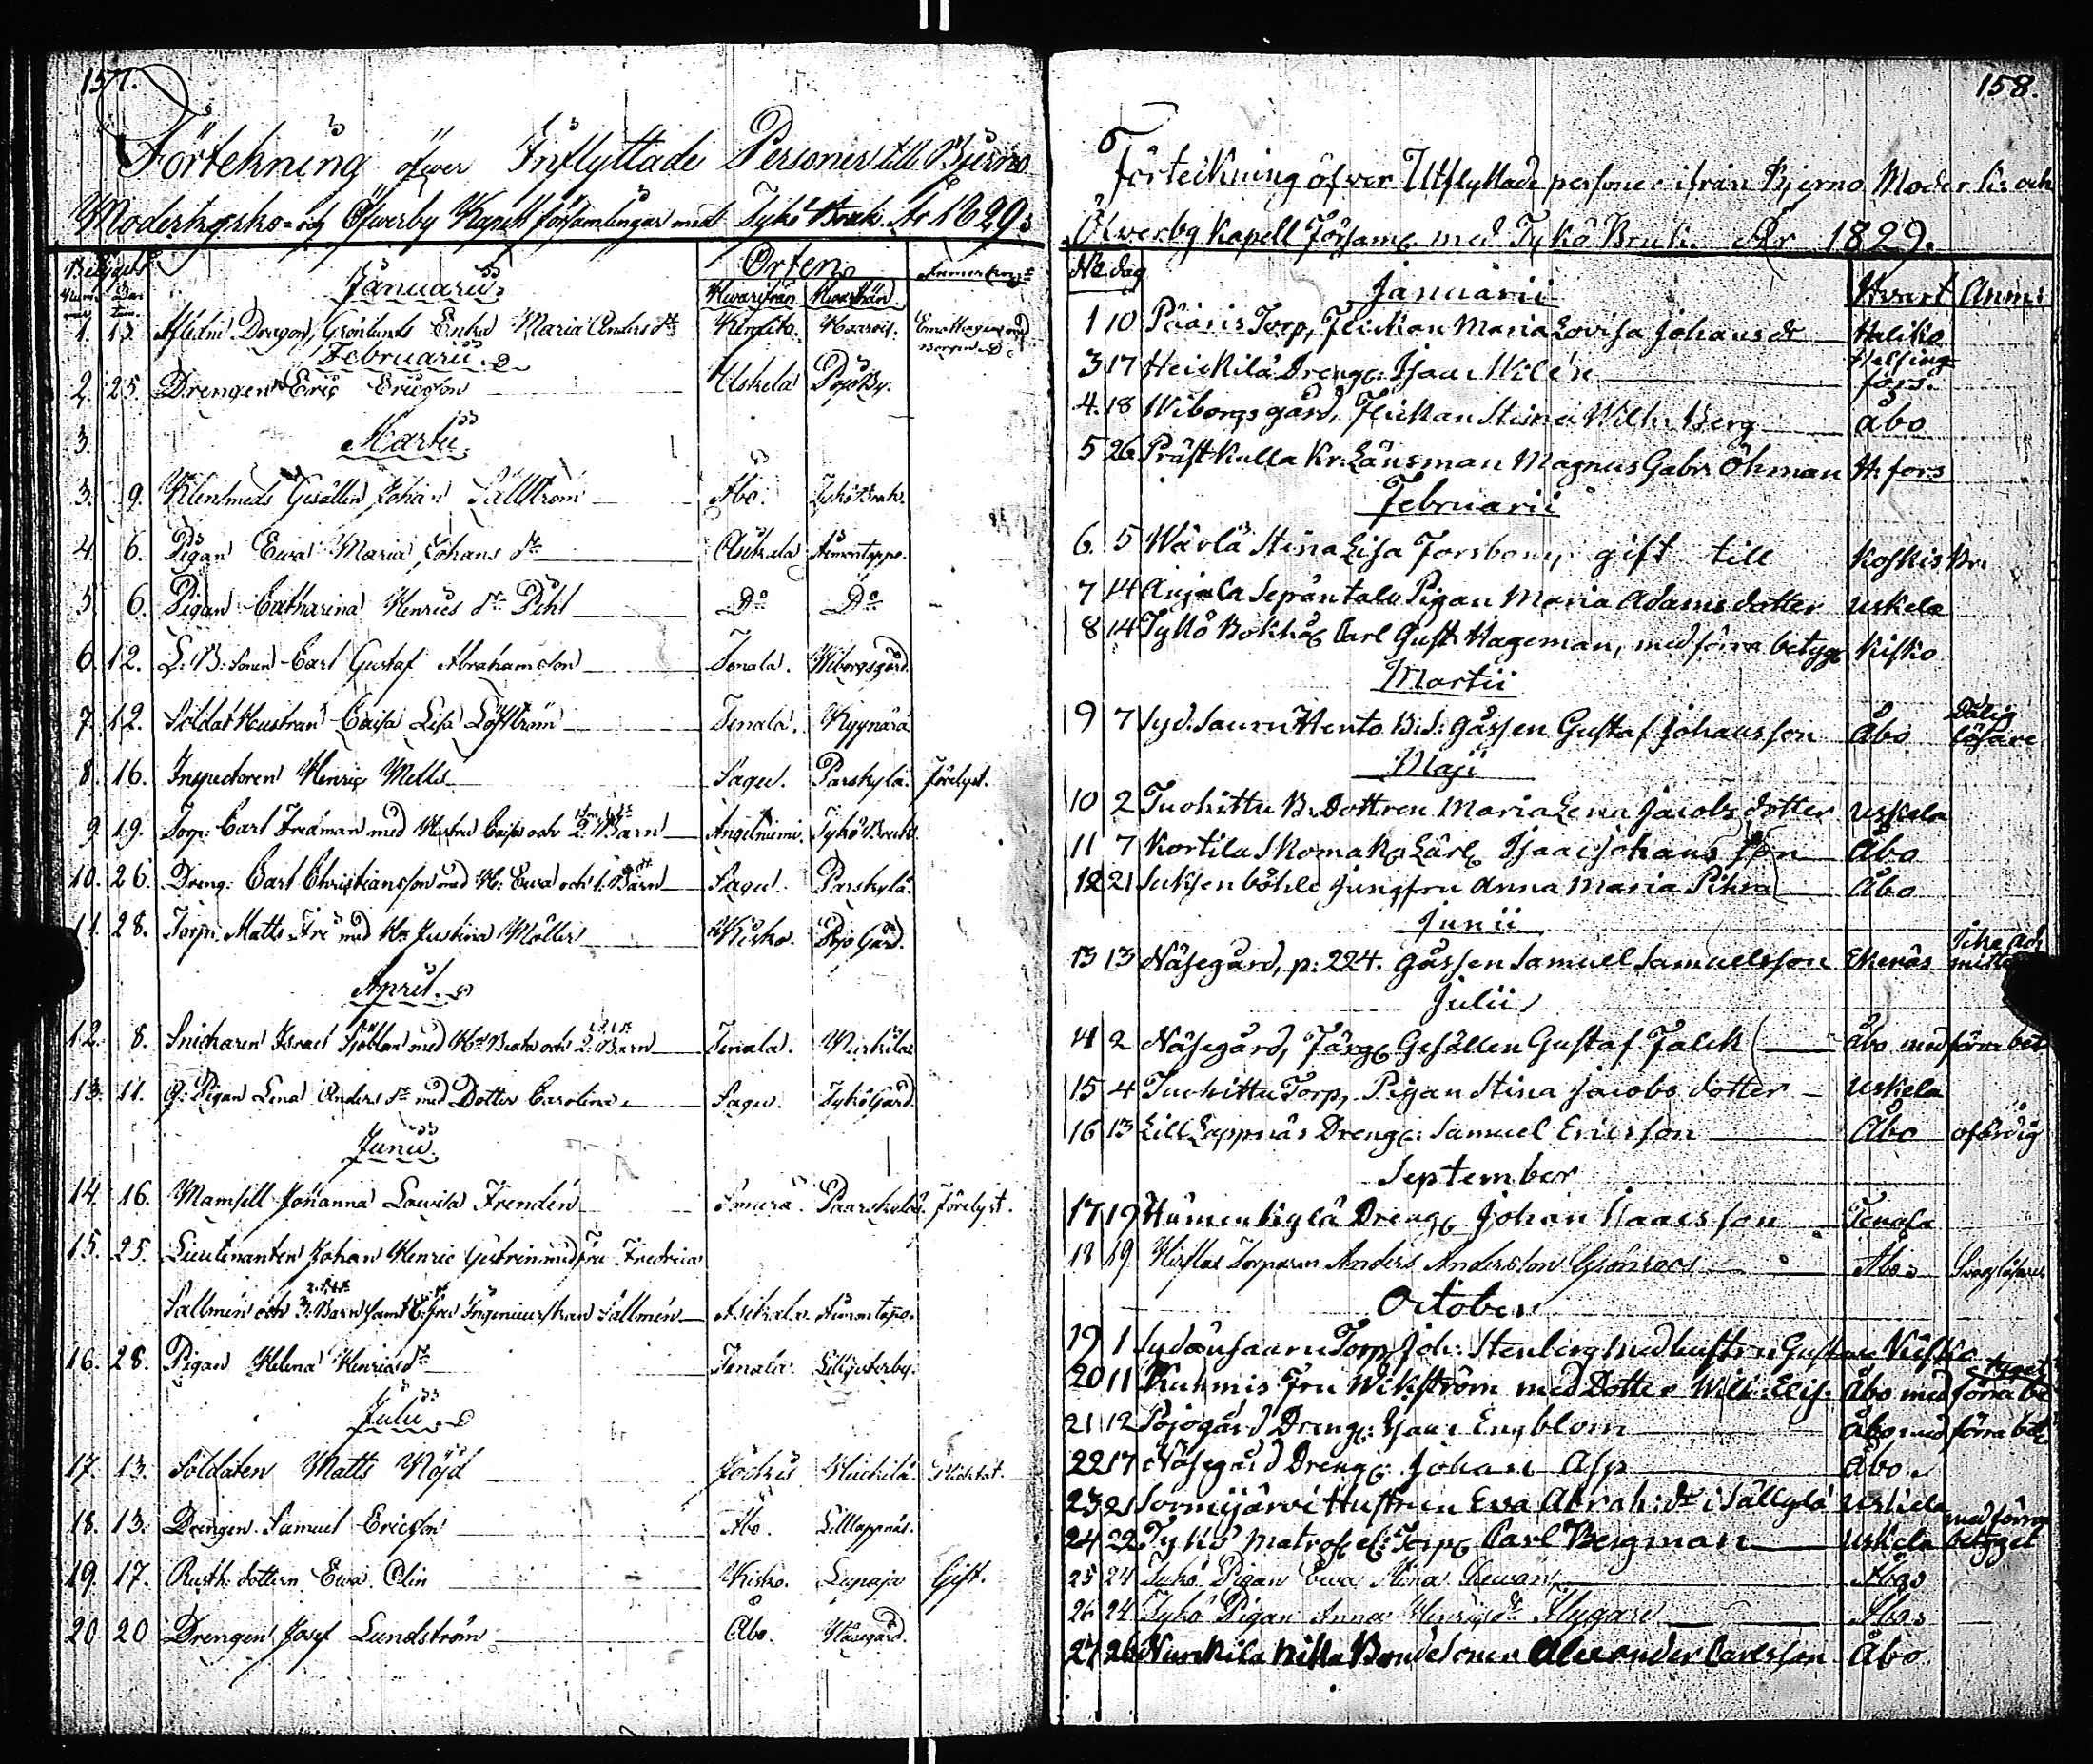 157.
Förtekning öfwer Inflyttade Personer till Bjerno
Moderkyrko- och Öfwerby Kapell församlingar med Tykö Bruk. År 1829.
Betygets
Januarii
Orten
Num- mer Da- tum
Hwarifrån Hwarthän
1. 13. Afledne Dragon, Grönlunds Enka Maria Anders dr
Februarii
2. 25. Drengen Eric Ericsson Uskela
3. Martii
3. 9. Klensmeds Gesällen Johan Sällström Åbo. Tykö Bruk.
4. 6. Pigan Ewa Maria Johans dr
5. 6. Pigan Catharina Henrics dr Pihl Do Do
6. 12. Sonen Carl Gustaf Abrahamsson Tenala. Wiborgsgård.
7. 12. Soldat Hustrun Caisa Lisa Löfström Tenala.
8. 16. Inspectoren Henric Sagu. Parskylä. Förelyst.
9. 19. Torp: Carl Fredman med Hustru Caisa och 2. Barn Angelniemi. Tykö Bruk.
10. 26. Dreng: Carl Christiansson med H: Ewa och 1. Barn Sagu. Parskylä.
11. 28. Torp: Matts Fri med Hu Justina Möller Kisko. Pojo Gård.
April.
12. 8. Snickaren Israel Sjöblom med Hu Beata och 2. Barn Tenala.
13. 11. Pigan Lena Anders dr med Dotter Carolina Sagu. Tykö Gård.
Junii.
14. 16. Mamsell Johanna Lovisa Frendén Paarskylä. Förelyst.
15. 25. Lieutenanten Johan Henric med Fru Fredrica
Sallmén och 3. Barn samt Ingenieurskan Sallmén
16. 28. Pigan Helena Henricsdr Tenala.
Julii.
17. 13. Soldaten Matts Nöjd Jockis
18. 13. Drengen Samuel Ericsson Åbo. Lilllappnäs.
19. 17. Rusth: dottern Ewa Olin Kisko. Gift.
20. 20 Drengen Josef Lundström Åbo. Näsegård.
158.
Förteckning öfver Utflyttade personer ifrån Bjerno Moder k: och
Öfverby Kapell Församl. med Tykö Bruk. År 1829.
No dag Januarii Hvart Anm:
1 10 Pääris Torp, Flickan Maria Lovisa Johansdr Haliko
3 17 Heickilä Dreng: Isaac Wilén Helsing
fors.
4. 18 Wiborgsgård, Flickan Stina Wilh: Berg Åbo
5 26 Präst Kulla Kr: Länsman Magnus Gabr: Öhman H:fors
Februarii
6. 5 Stina Lisa Forsbom, gift till Koskis Br:
7 14 Anjala Sepäntalo Pigan Maria Adamsdotter Uskela
8 14 Tykö Bokhå: Carl Gust: Hageman, med förra betyg: Kisko
Martii
9 7 Gåssen Gustaf Johansson Åbo Dålig
läsare
Maji
10 2 Tuohittu B. Dottren Maria Lena Jacobsdotter Uskela
11 7 Kortila Skomak: Lärl: Isaac Johansson Åbo
12 21 Suksenböhle Jungfru Anna Maria Åbo
Junii
13 13 Näsegård, p: 224. gåssen Samuel Samuelsson Ekenäs
Julii
14 2 Näsegård, Färg: Gesällen Gustaf Falck Åbo med förra bet
15 4 Tuohittu Torp, Pigan Stina Jacobsdotter Uskela
16 13 Lill Lappnäs Dreng: Samuel Ericsson Åbo ofärdig
September
17 19 Hämenkylä Dreng: Johan Isaacsson Tenala
18 19 Torparen Anders Andersson Grönroos Åbo Svag läsare
October
19 1 Torp: Joh: Stenberg med hustru Kisko
20 11 Kuhmis Fru Wikström med Dotter Wilh: Elis: Åbo med förra be
tyget
21 12 Pojogård Dreng: Isaac Engblom Åbo med förra bet:
22 17 Näsegård Dreng: Johan Asp Åbo.
23 21 Sormijärvi Hustrun Eva Abrah: dr i Sällylä Uskela
24 22 Tykö Matros el: Torp: Carl Bergman Uskela med förra
betyget
25 24 Tykö Pigan Ewa Stina Åbo
26 24 Tykö Pigan Anna Henrics dr Åbo
27 26 Bonde Sonen Alexander Carlsson Åbo